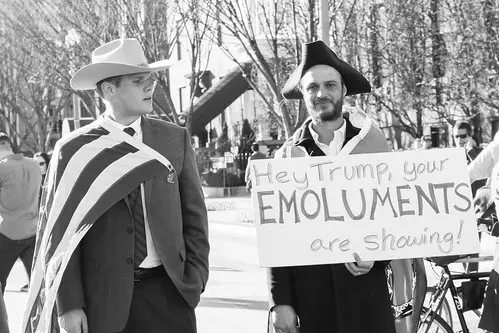 Hey Trump, your
EMOLUMENTS
are showing!